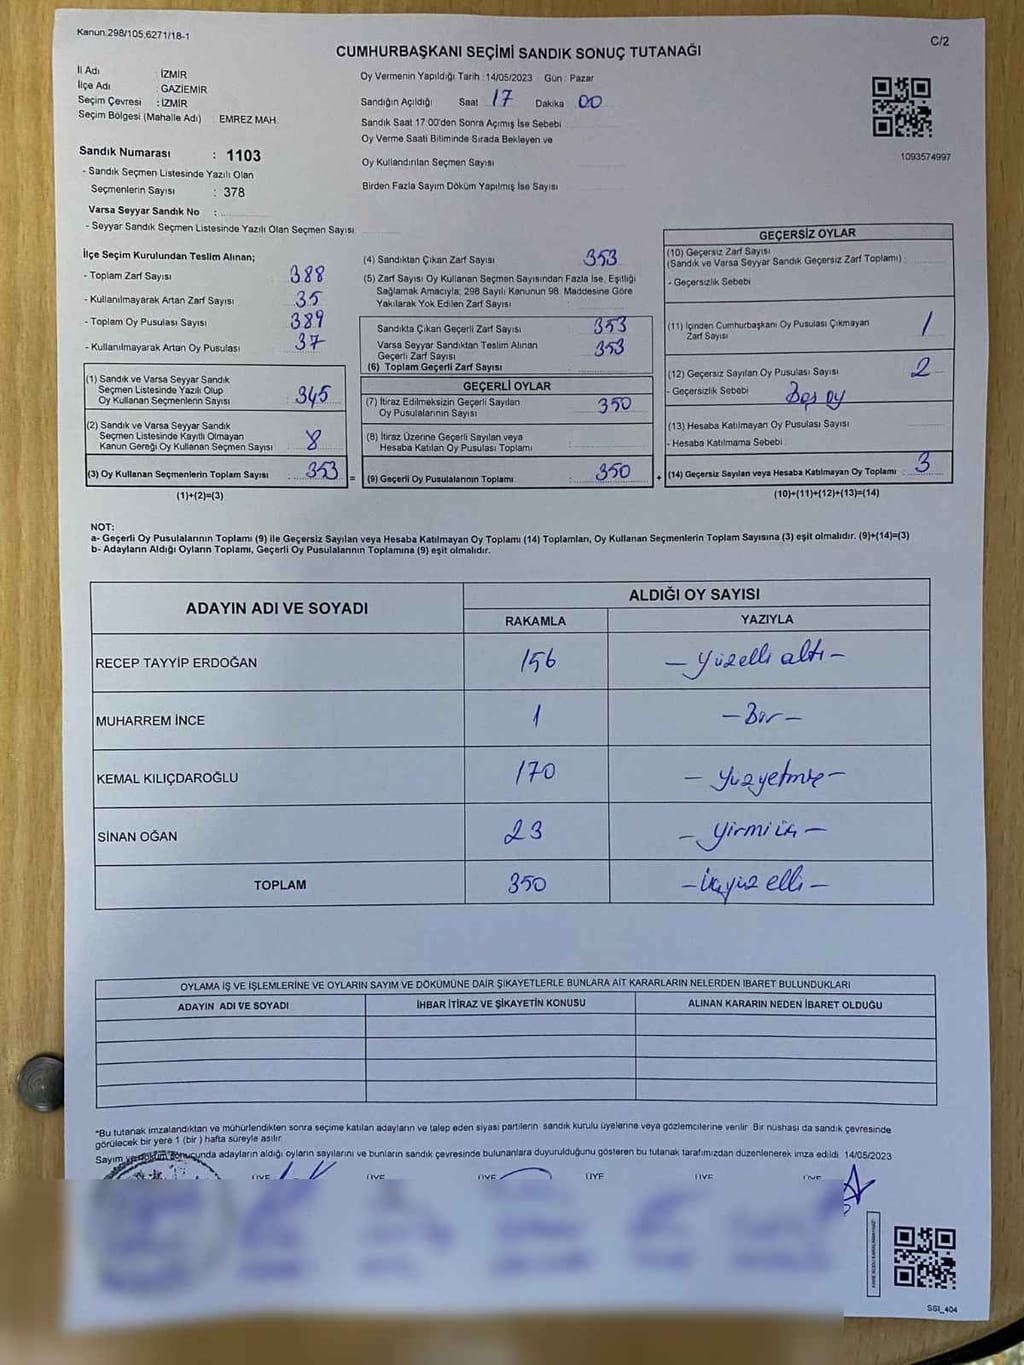 Kanun.298/105,6271/18-1
C/2
CUMHURBAŞKANI SEÇİMİ SANDIK SONUÇ TUTANAĞI
İl Adı İZMİR
İlçe Adı GAZİEMİR
Seçim Çevresi : İZMİR
Seçim Bölgesi (Mahalle Adı) EMREZ MAH.
Sandık Numarası : 1103
- Sandık Seçmen Listesinde Yazılı Olan
Seçmenlerin Sayısı : 378
Varsa Seyyar Sandık No :
- Seyyar Sandık Seçmen Listesinde Yazılı Olan Seçmen Sayısı
Oy Vermenin Yapıldığı Tarih :14/05/2023 Gün : Pazar
Sandığın Açıldığı Saat 17 Dakika 00
Sandık Saat 17:00'den Sonra Açımış İse Sebebi
Oy Verme Saati Bitiminde Sırada Bekleyen ve
Oy Kullandırılan Seçmen Sayısı
Birden Fazla Sayım Döküm Yapılmış İse Sayısı
1093574997
İlçe Seçim Kurulundan Teslim Alınan;
- Toplam Zarf Sayısı 388
- Kullanılmayarak Artan Zarf Sayısı 35
- Toplam Oy Pusulası Sayısı 389
- Kullanılmayarak Artan Oy Pusulası 37
(1) Sandık ve Varsa Seyyar Sandık
Seçmen Listesinde Yazılı Olup
Oy Kullanan Seçmenlerin Sayısı 345
(2) Sandık ve Varsa Seyyar Sandık
Seçmen Listesinde Kayıtlı Olmayan
Kanun Gereği Oy Kullanan Seçmen Sayısı 8
(3) Oy Kullanan Seçmenlerin Toplam Sayısı : 353 =
(1)+(2)=(3)
(4) Sandıktan Çıkan Zarf Sayısı 353
(5) Zarf Sayısı Oy Kullanan Seçmen Sayısından Fazla İse, Eşitliği
Sağlamak Amacıyla; 298 Sayılı Kanunun 98. Maddesine Göre
Yakılarak Yok Edilen Zarf Sayısı
Sandıkta Çıkan Geçerli Zarf Sayısı 353
Varsa Seyyar Sandıktan Teslim Alınan
Geçerli Zarf Sayısı 353
(6) Toplam Geçerli Zarf Sayısı
GEÇERLİ OYLAR
(7) İtiraz Edilmeksizin Geçerli Sayılan
Oy Pusulalarının Sayısı 350
(8) İtiraz Üzerine Geçerli Sayılan veya
Hesaba Katılan Oy Pusulası Toplamı
(9) Geçerli Oy Pusulalarının Toplamı : 350 +
GEÇERSİZ OYLAR
(10) Geçersiz Zarf Sayısı
(Sandık ve Varsa Seyyar Sandık Geçersiz Zarf Toplamı) :
- Geçersizlik Sebebi
(11) İçinden Cumhurbaşkanı Oy Pusulası Çıkmayan
Zarf Sayısı 1
(12) Geçersiz Sayılan Oy Pusulası Sayısı 2
- Geçersizlik Sebebi Boş oy
(13) Hesaba Katılmayan Oy Pusulası Sayısı
- Hesaba Katılmama Sebebi :
(14) Geçersiz Sayılan veya Hesaba Katılmayan Oy Toplamı : 3
(10)+(11)+(12)+(13)=(14)
NOT:
a- Geçerli Oy Pusulalarının Toplamı (9) ile Geçersiz Sayılan veya Hesaba Katılmayan Oy Toplamı (14) Toplamları, Oy Kullanan Seçmenlerin Toplam Sayısına (3) eşit olmalıdır. (9)+(14)=(3)
b- Adayların Aldığı Oyların Toplamı, Geçerli Oy Pusulalarının Toplamına (9) eşit olmalıdır.
ADAYIN ADI VE SOYADI ALDIĞI OY SAYISI
RAKAMLA YAZIYLA
RECEP TAYYİP ERDOĞAN 156 – Yüzelli altı –
MUHARREM İNCE 1 – Bir –
KEMAL KILIÇDAROĞLU 170 – Yüzyetmiş –
SİNAN OĞAN 23 – Yirmi üç –
TOPLAM 350 – Üçyüz elli –
OYLAMA İŞ VE İŞLEMLERİNE VE OYLARIN SAYIM VE DÖKÜMÜNE DAİR ŞİKAYETLERLE BUNLARA AİT KARARLARIN NELERDEN İBARET BULUNDUKLARI
ADAYIN ADI VE SOYADI İHBAR İTİRAZ VE ŞİKAYETİN KONUSU ALINAN KARARIN NEDEN İBARET OLDUĞU
*Bu tutanak imzalandıktan ve mühürlendikten sonra seçime katılan adayların ve talep eden siyasi partilerin sandık kurulu üyelerine veya gözlemcilerine verilir. Bir nüshası da sandık çevresinde
görülecek bir yere 1 (bir ) hafta süreyle asılır.
Sayım ve döküm sonucunda adayların aldığı oyların sayılarını ve bunların sandık çevresinde bulunanlara duyurulduğunu gösteren bu tutanak tarafımızdan düzenlenerek imza edildi. 14/05/2023
ÜYE ÜYE ÜYE ÜYE ÜYE ÜYE
SSI_404